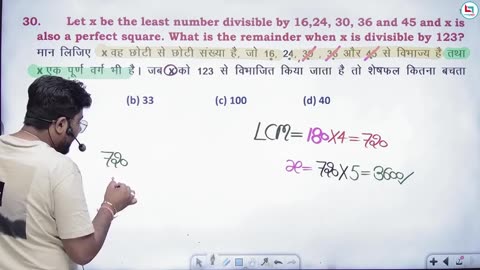 30. Let x be the least number divisible by 16,24, 30, 36 and 45 and x is
also a perfect square. What is the remainder when x is divisible by 123?
मान लिजिए x वह छोटी से छोटी संख्या है, जो 16, 24, 30, 36 और 45 से विभाज्य है तथा
x एक पूर्ण वर्ग भी है। जब x को 123 से विभाजित किया जाता है तो शेषफल कितना बचता
(b) 33 (c) 100 (d) 40
LCM = 180×4 = 720
x = 720×5 = 3600✓
720